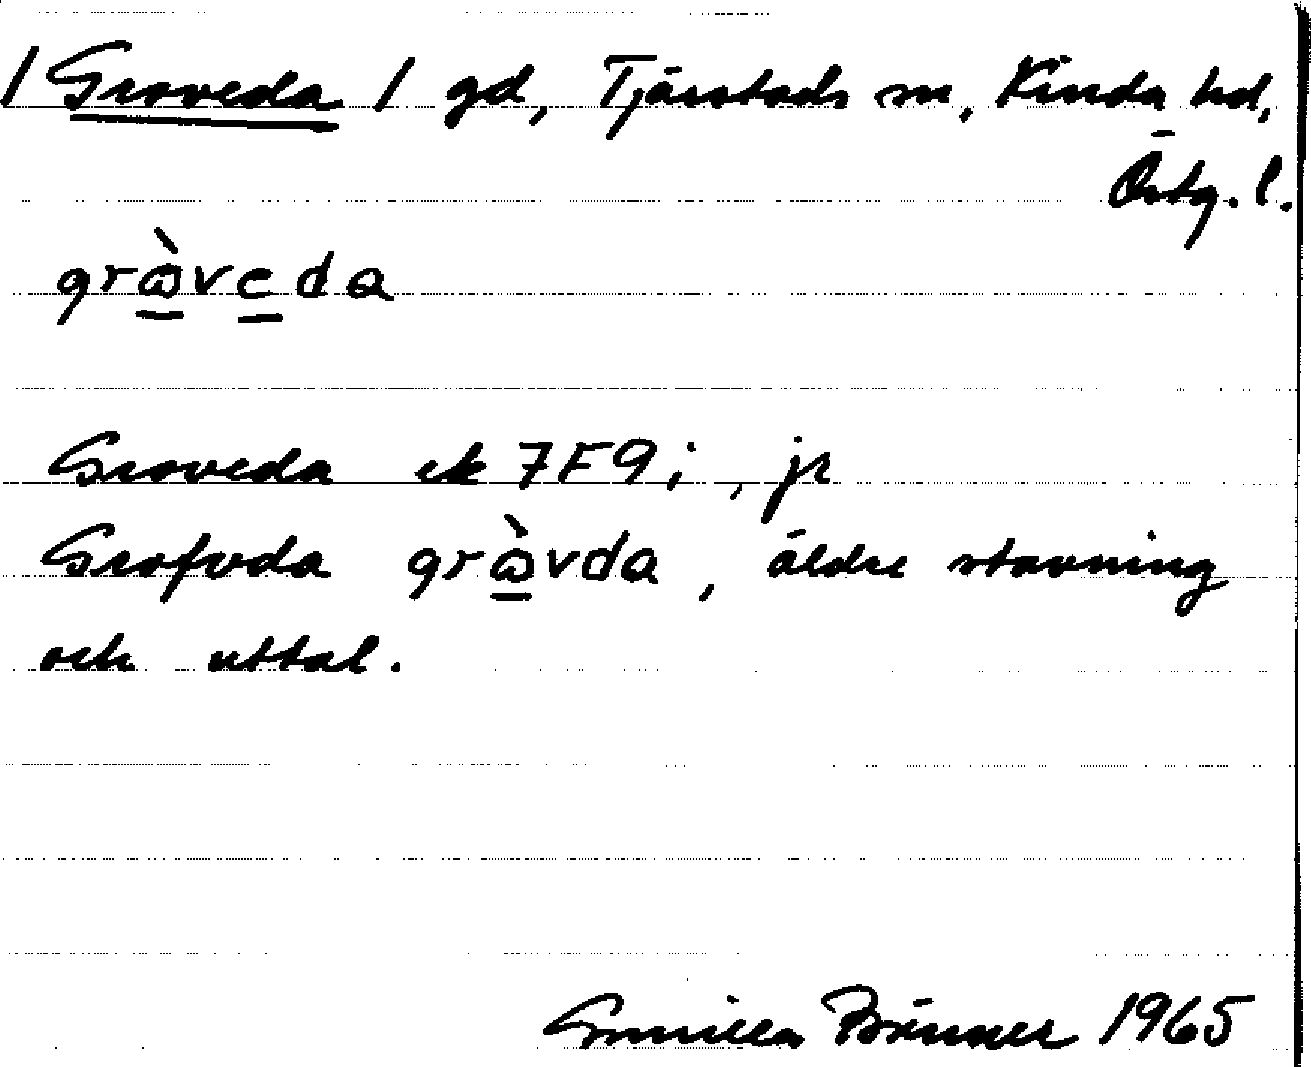 / Groveda / gd, Tjärstads sn, Kinda hd,
Östg. l.
grὼveda
Groveda ek 7F9i, jr
Grofvda grὼvda, äldre stavning
och uttal.
Gunilla Brünner 1965